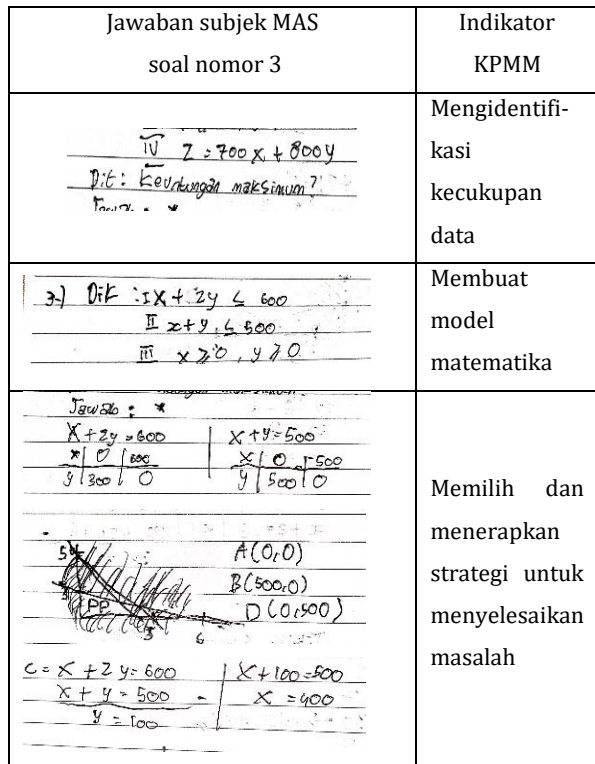 Jawaban subjek MAS
soal nomor 3
Indikator
KPMM
IV Z = 700x + 800y
Dit : Keuntungan maksimum?
Jawab : *
Mengidentifi-
kasi
kecukupan
data
3.) Dik : I x + 2y ≤ 600
II x + y ≤ 500
III x ≥ 0, y ≥ 0
Membuat
model
matematika
Jawab : *
x + 2y = 600 | x + y = 500
x | 0 | 600 x | 0 | 500
y | 300 | 0 y | 500 | 0
5
PP
5 6
A(0,0)
B(500,0)
D(0,500)
C = x + 2y = 600 | x + 100 = 500
x + y = 500 - | x = 400
y = 100
Memilih dan
menerapkan
strategi untuk
menyelesaikan
masalah